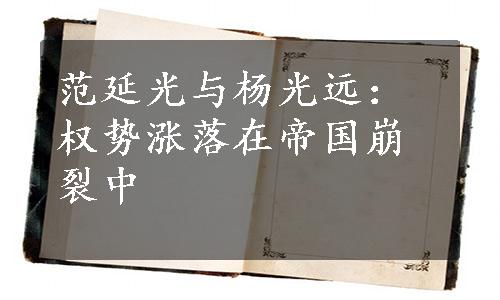 范延光与杨光远：
权势涨落在帝国崩
裂中